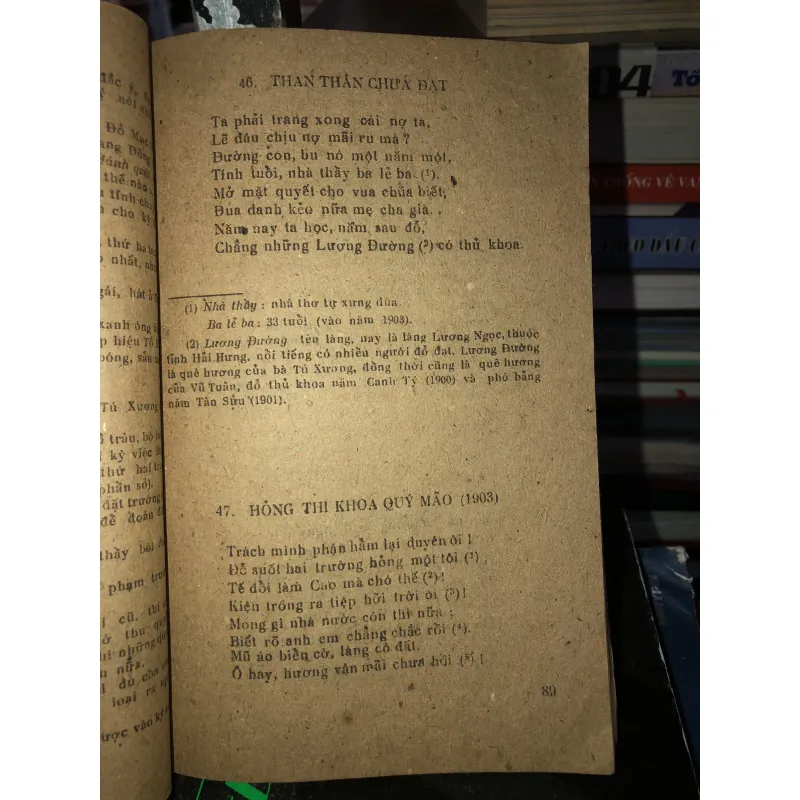 46. THAN THÂN CHƯA ĐẠT
Ta phải trang xong cái nợ ta,
Lẽ đâu chịu nợ mãi ru mà?
Đường con, bu nó một năm một,
Tính tuổi, nhà thầy ba lẻ ba (¹).
Mở mặt quyết cho vua chúa biết,
Đua danh kẻo nữa mẹ cha già.
Năm nay ta học, năm sau đỗ,
Chẳng những Lương Đường (²) có thủ khoa.
(1) Nhà thầy: nhà thơ tự xưng đùa
Ba lẻ ba: 33 tuổi (vào năm 1903).
(2) Lương Đường tên làng, nay là làng Lương Ngọc, thuộc
tỉnh Hải Hưng, nổi tiếng có nhiều người đỗ đạt. Lương Đường
là quê hương của bà Tú Xương, đồng thời cũng là quê hương
của Vũ Tuân, đỗ thủ khoa năm Canh Tý (1900) và phó bảng
năm Tân Sửu (1901).
47. HỎNG THI KHOA QUÝ MÃO (1903)
Trách mình phận hẩm lại duyên ôi!
Đỗ suốt hai trường hỏng một tôi (¹),
Tế đổi làm Cao mà chó thế (²)!
Kiện trông ra tiệp hỡi trời ôi (³)!
Mong gì nhà nước còn thi nữa;
Biết rõ anh em chẳng chắc rồi (⁴).
Mũ áo biển cờ, làng có đất.
Ô hay, hương vận mãi chưa hồi (⁵)!
89
Đỗ Mục
thứ ba
gái, hát ả
Tú Xương
thứ hai
đặt trường
để đoán
thầy bói
phạm trườ
cũ. thi
thu
nữa.
dù còn
loại ra
ược vào kỳ
04
TỐ
THỐNG VỀ VĂN
THEO DẤU